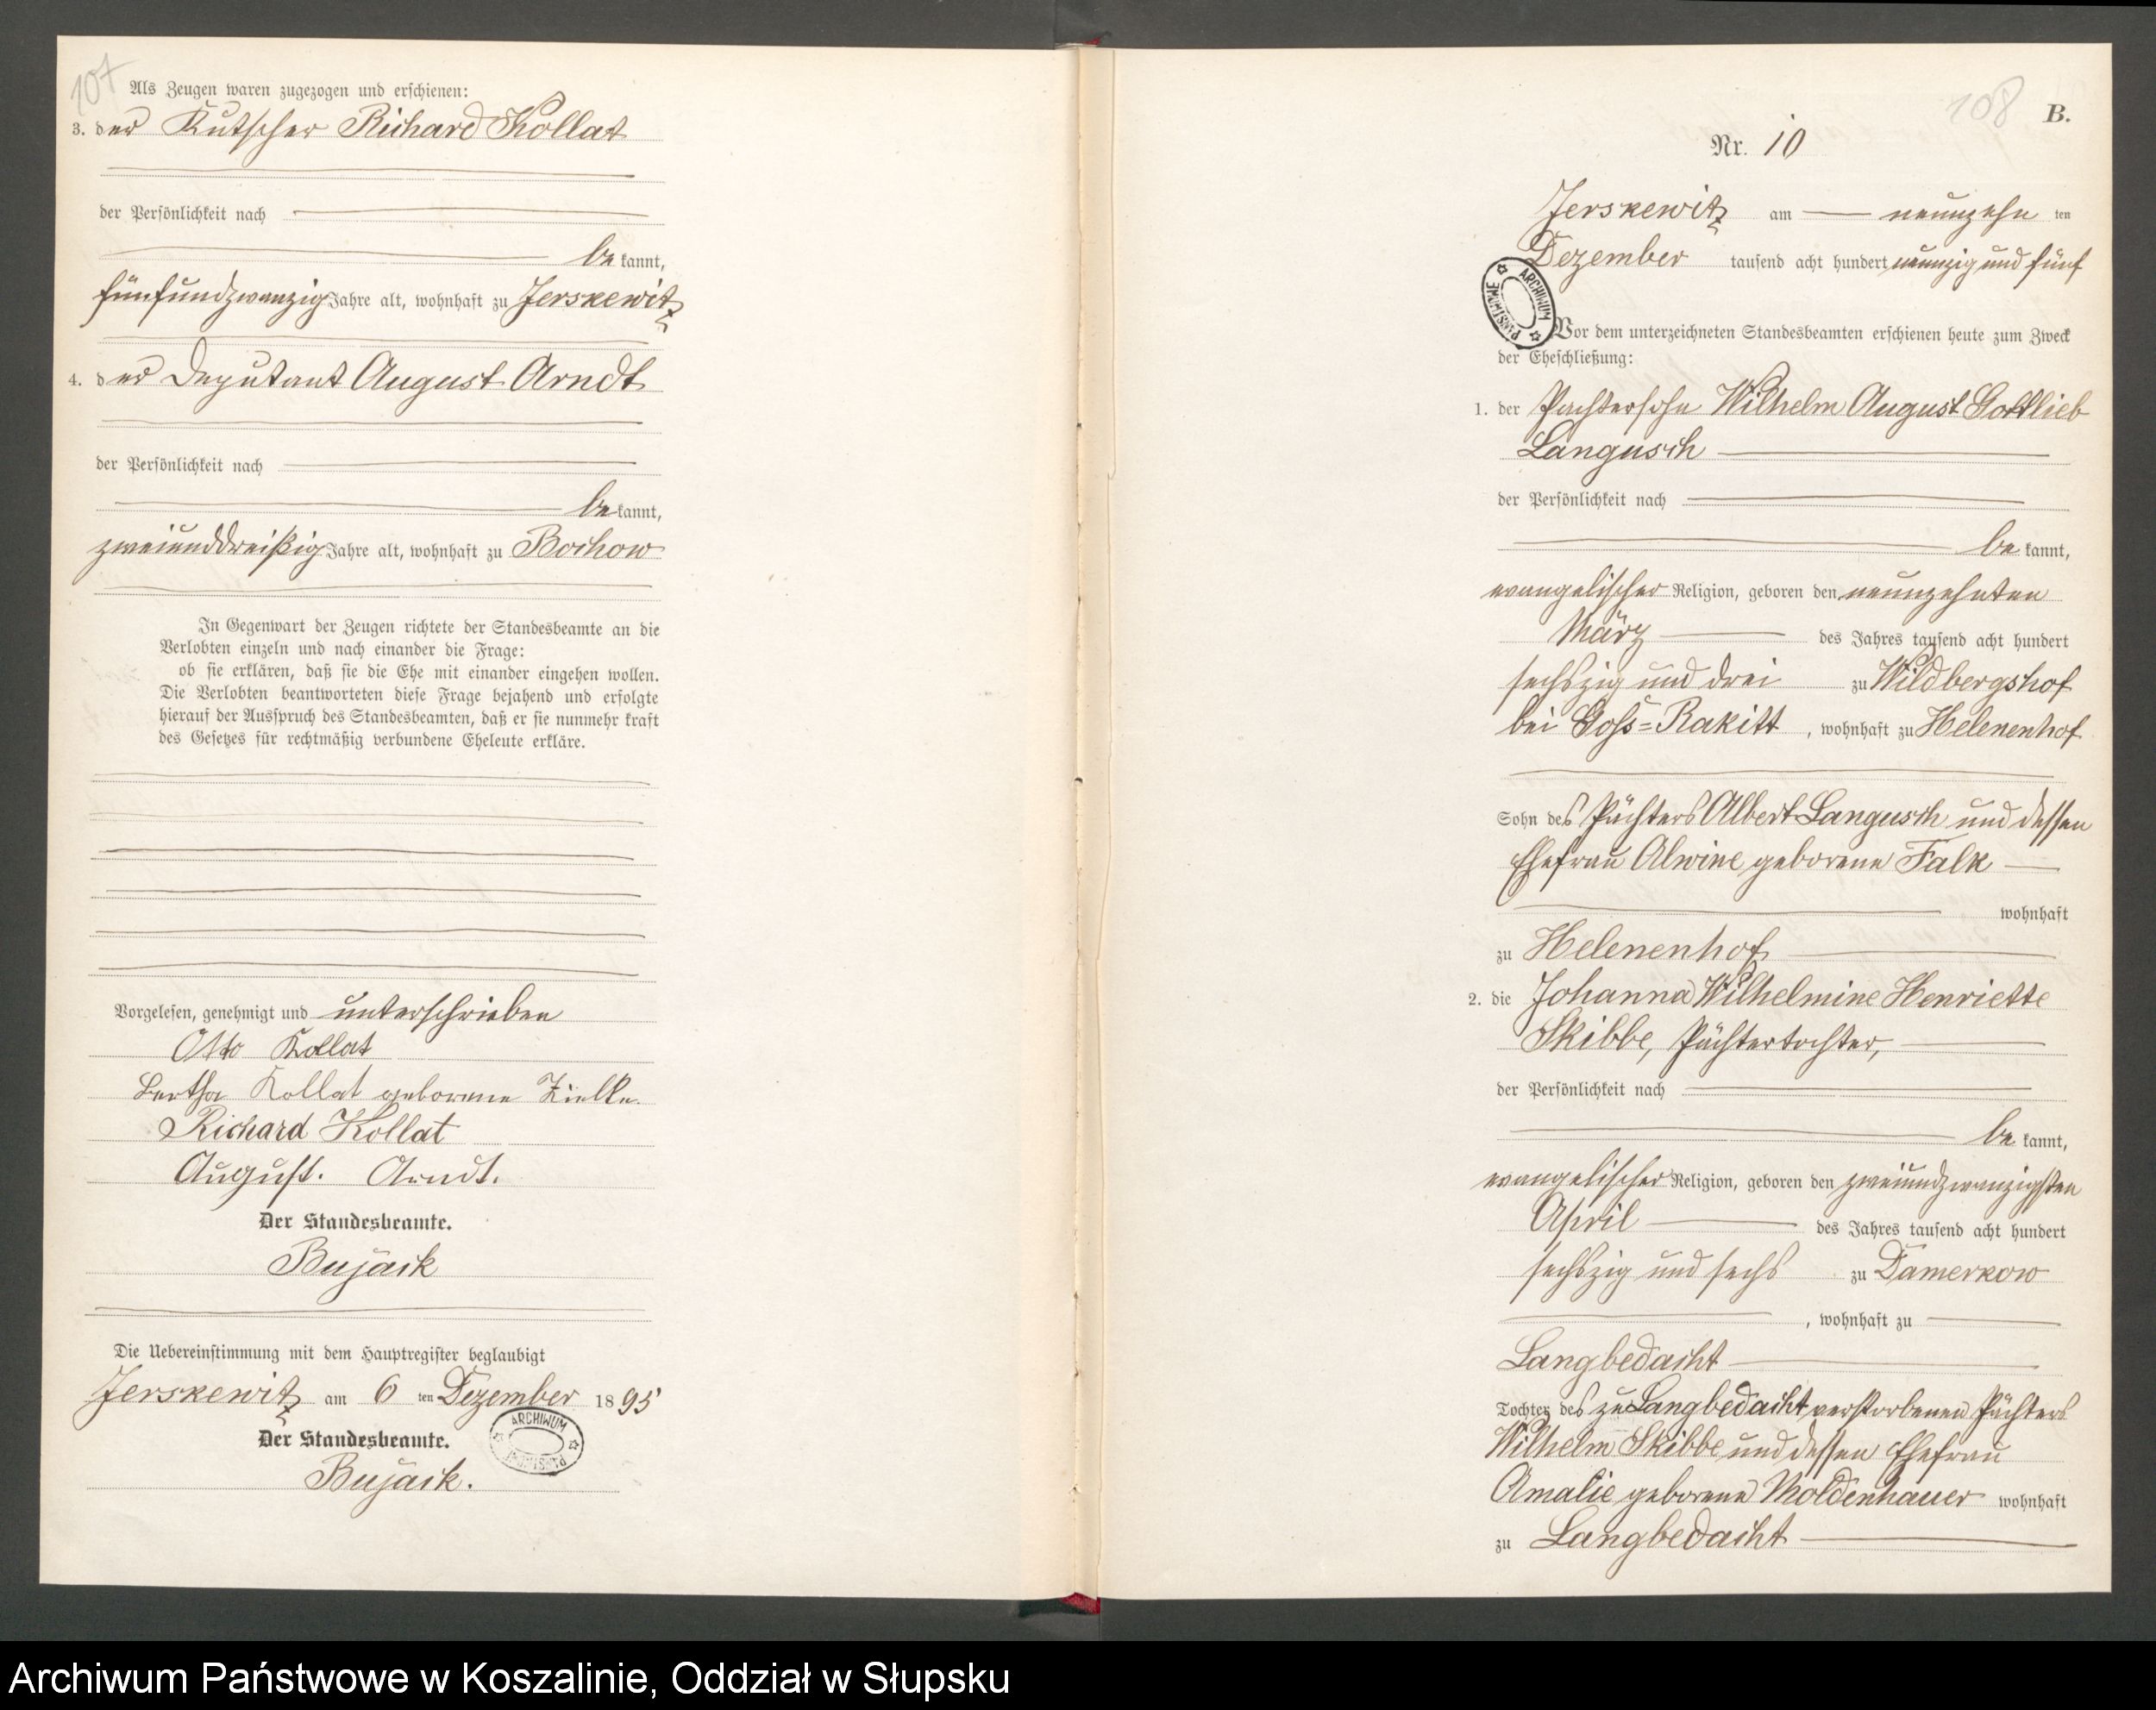 107
Als Zeugen waren zugezogen und erschienen:
3. der Kutscher Richard Kollat
der Persönlichkeit nach
bekannt,
fünfundzwanzig Jahre alt, wohnhaft zu Jerskewitz
4. der Deputant August Arndt
der Persönlichkeit nach
bekannt,
zweiunddreißig Jahre alt, wohnhaft zu Bochow
In Gegenwart der Zeugen richtete der Standesbeamte an die
Verlobten einzeln und nach einander die Frage:
ob sie erklären, daß sie die Ehe mit einander eingehen wollen.
Die Verlobten beantworteten diese Frage bejahend und erfolgte
hierauf der Ausspruch des Standesbeamten, daß er sie nunmehr kraft
des Gesetzes für rechtmäßig verbundene Eheleute erkläre.
Vorgelesen, genehmigt und unterschrieben
Otto Kollat
Bertha Kollat geborene Zielke.
Richard Kollat
August. Arndt.
Der Standesbeamte.
Bujack
Die Uebereinstimmung mit dem Hauptregister beglaubigt
Jerskewitz am 6 ten Dezember 1895
Der Standesbeamte.
ARCHIWUM PAŃSTWOWE
Bujack.
108
B.
Nr. 10
Jerskewitz am neunzehn ten
Dezember tausend acht hundert neunzig und fünf
ARCHIWUM PAŃSTWOWE
Vor dem unterzeichneten Standesbeamten erschienen heute zum Zweck
der Eheschließung:
1. der Pachtersohn Wilhelm August Gottlieb
Langusch
der Persönlichkeit nach
bekannt,
evangelischer Religion, geboren den neunzehnten
März des Jahres tausend acht hundert
sechszig und drei zu Wildbergshof
bei Goss=Rakitt, wohnhaft zu Helenenhof
Sohn des Pächters Albert Langusch und dessen
Ehefrau Alwine geborene Falk
wohnhaft
zu Helenenhof
2. die Johanna Wilhelmine Henriette
Skibbe, Pächtertochter,
der Persönlichkeit nach
bekannt,
evangelischer Religion, geboren den zweiundzwanzigsten
April des Jahres tausend acht hundert
sechszig und sechs zu Damerkow
, wohnhaft zu
Langbedacht
Tochter des zu Langbedacht verstorbenen Pächters
Wilhelm Skibbe und dessen Ehefrau
Amalie geborene Moldenhauer wohnhaft
zu Langbedacht
Archiwum Państwowe w Koszalinie, Oddział w Słupsku